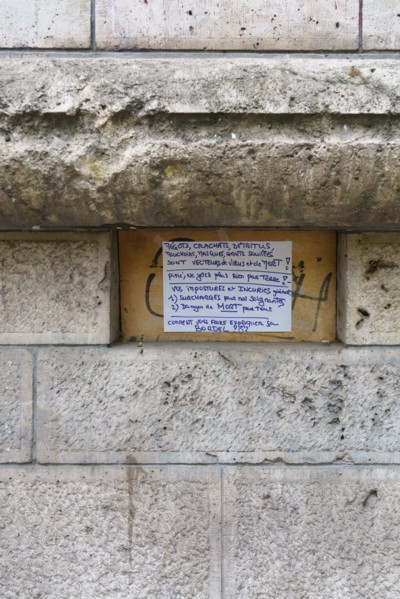 MÉGOTS, CRACHATS, DÉTRITUS,
MOUCHOIRS, MASQUES, GANTS SOUILLÉS
SONT VECTEURS de VIRUS et de MORT !
PITIÉ, NE JETEZ PLUS RIEN PAR TERRE !
VOS IMPOSTURES et INCURIES
1) SURCHARGES pour nos Soignantes
2) Danger de MORT pour tous
COMMENT FAIRE
BORDEL ?!?